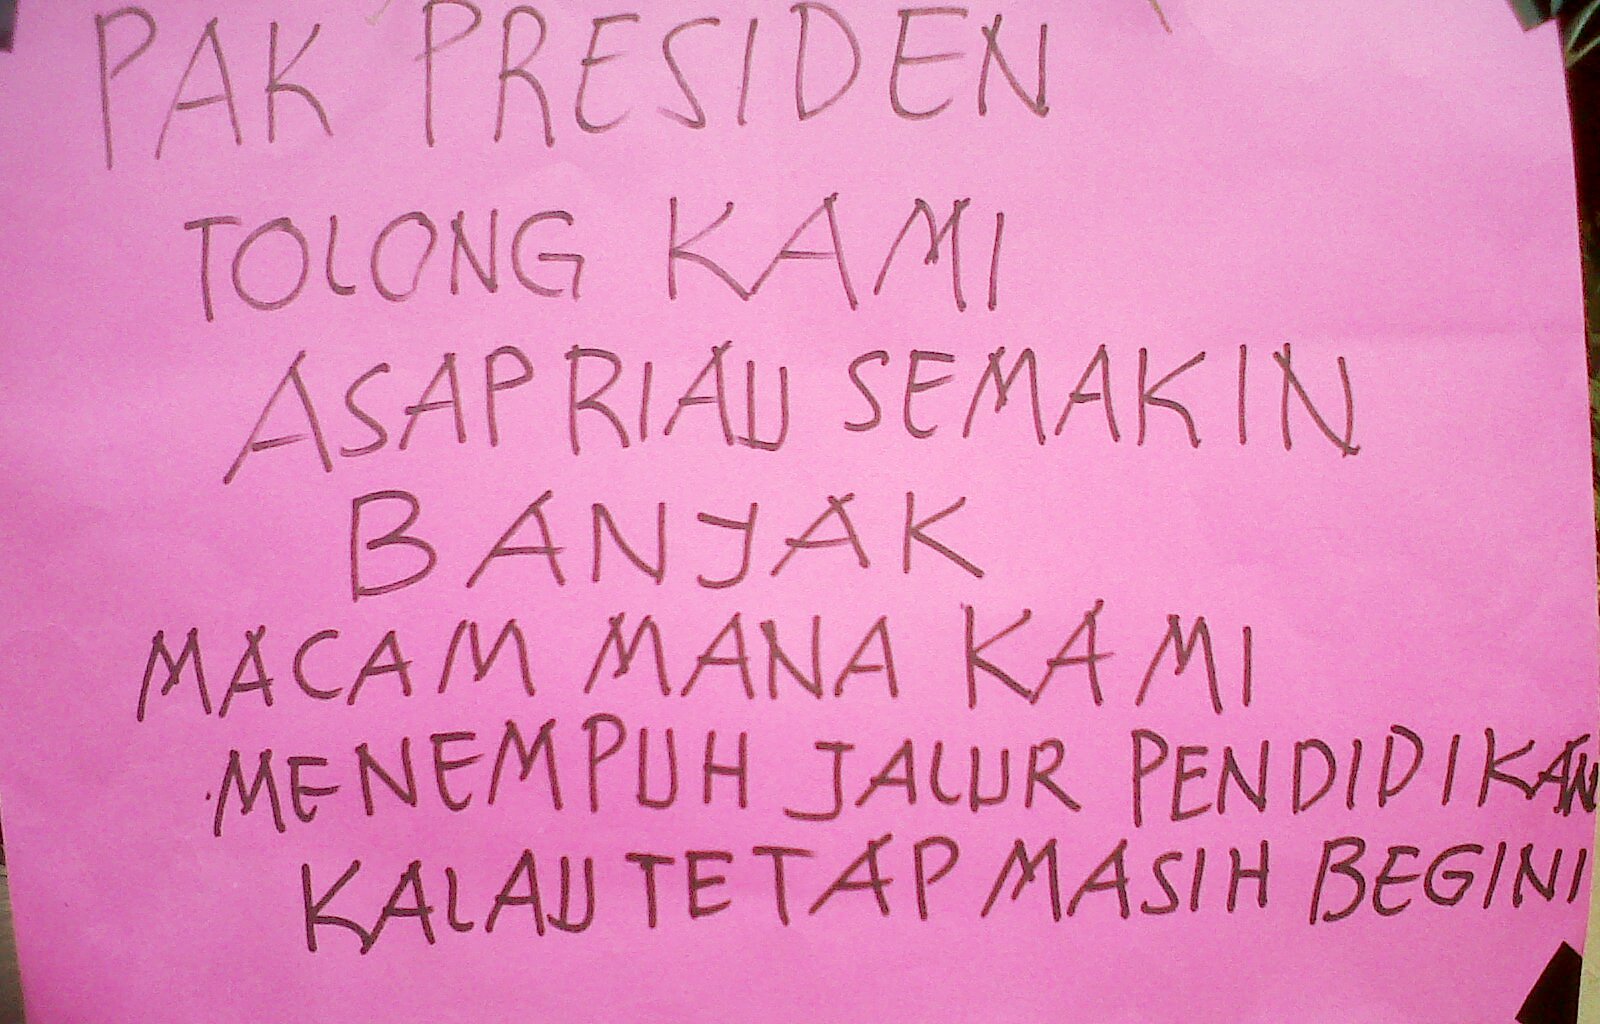 PAK PRESIDEN
TOLONG KAMI
ASAP RIAU SEMAKIN
BANYAK
MACAM MANA KAMI
MENEMPUH JALUR PENDIDIKAN
KALAU TETAP MASIH BEGINI